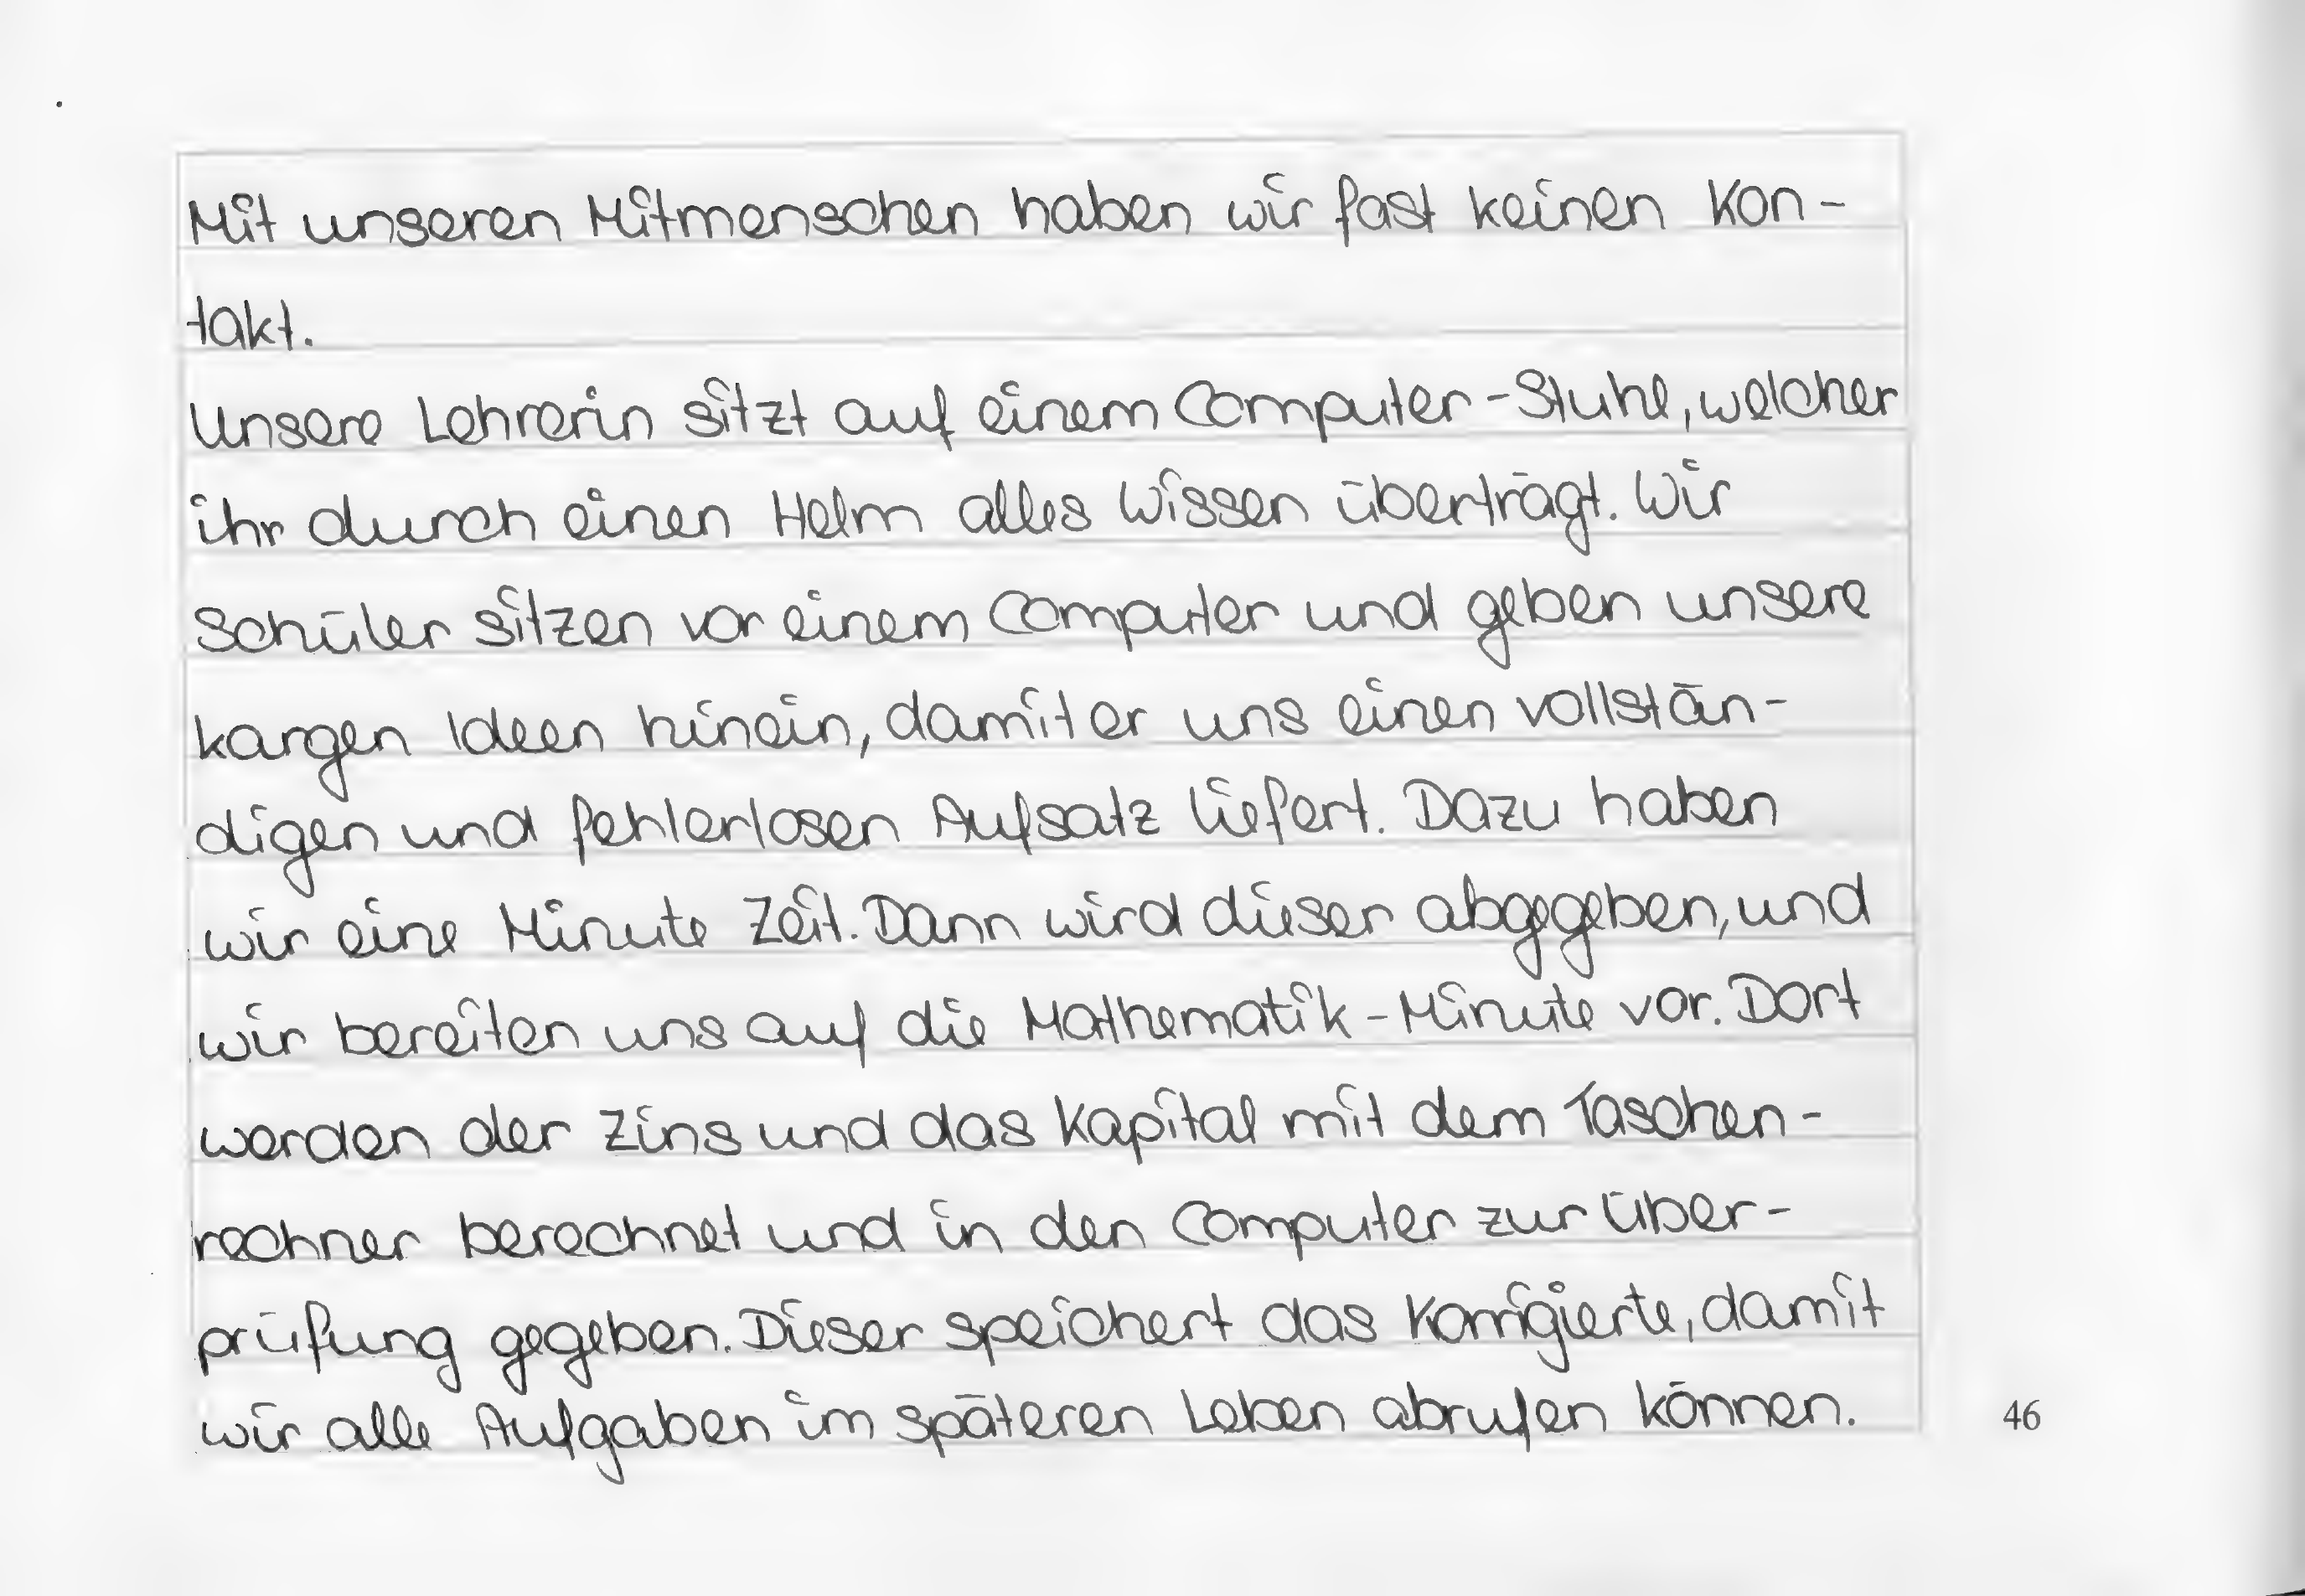 Mit unseren Mitmenschen haben wir fast keinen Kon-
takt.
Unsere Lehrerin sitzt auf einem Computer-Stuhl, welcher
ihr durch einen Helm alles Wissen überträgt. Wir
Schüler sitzen vor einem Computer und geben unsere
kargen Ideen hinein, damit er uns einen vollstän-
digen und fehlerlosen Aufsatz liefert. Dazu haben
wir eine Minute Zeit. Dann wird dieser abgegeben, und
wir bereiten uns auf die Mathematik-Minute vor. Dort
werden der Zins und das Kapital mit dem Taschen-
rechner berechnet und in den Computer zur Über-
prüfung gegeben. Dieser speichert das Korrigierte, damit
wir alle Aufgaben im späteren Leben abrufen können.
46